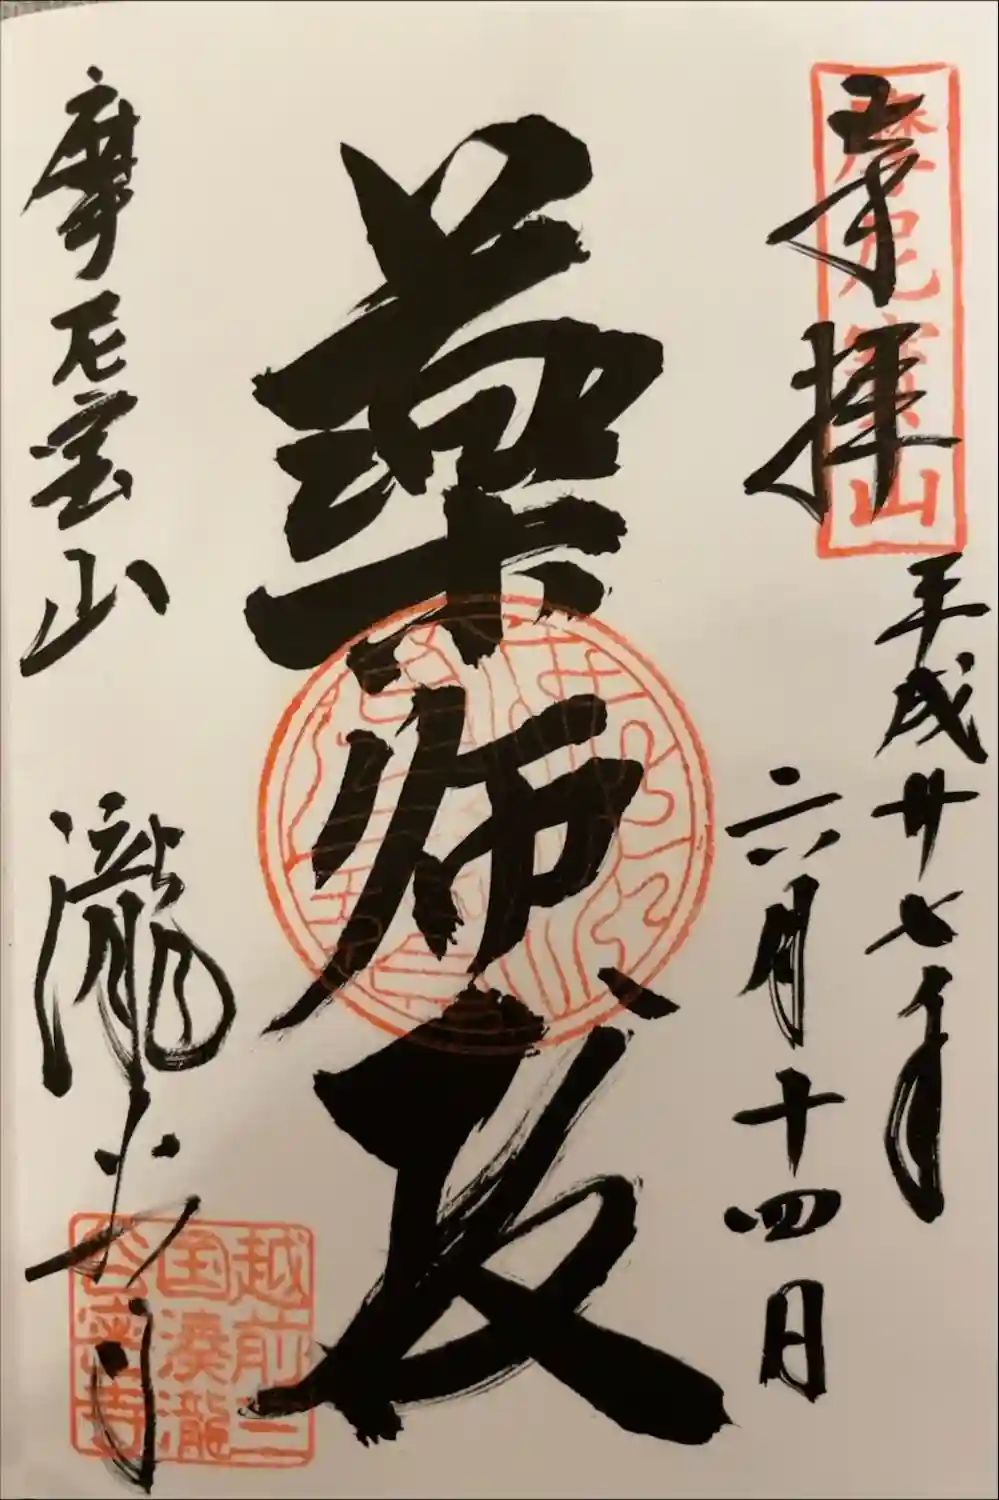 摩尼寳山
奉拝
平成廿七年
六月十四日
薬師
摩尼宝山 瀧谷寺
越前三
国湊瀧
谷寺